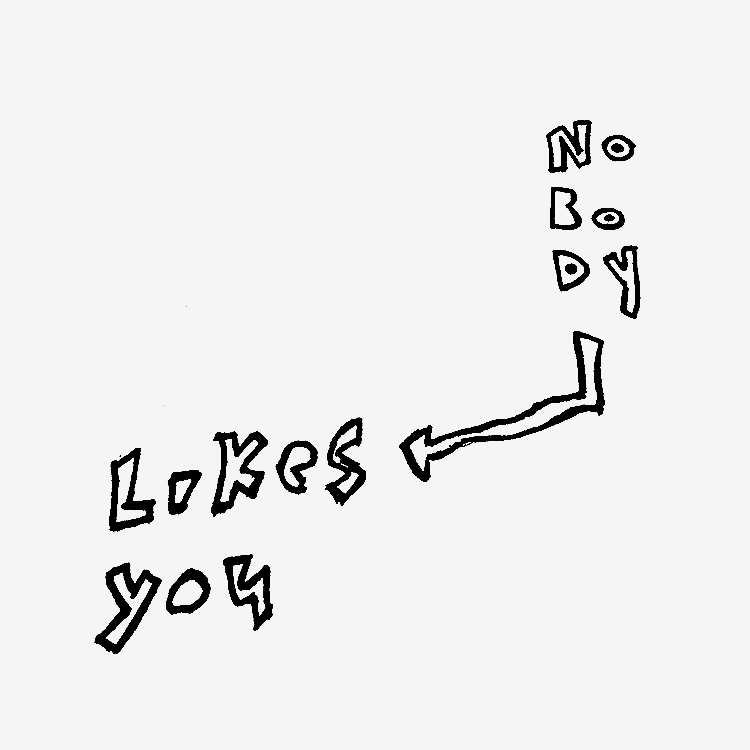 No
Bo
Dy
Likes
you